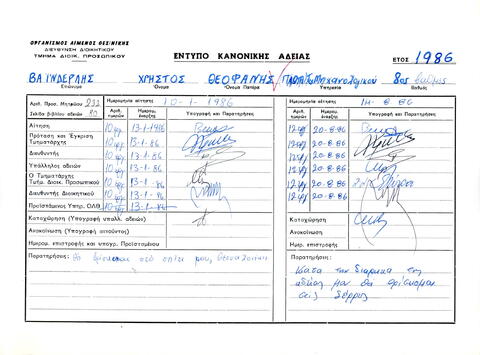 ΟΡΓΑΝΙΣΜΟΣ ΛΙΜΕΝΟΣ ΘΕΣ/ΝΙΚΗΣ
ΔΙΕΥΘΥΝΣΗ ΔΙΟΙΚΗΤΙΚΟΥ
ΤΜΗΜΑ ΔΙΟΙΚ. ΠΡΟΣΩΠΙΚΟΥ
ΕΝΤΥΠΟ ΚΑΝΟΝΙΚΗΣ ΑΔΕΙΑΣ
ΕΤΟΣ 1986
ΒΑΪΝΔΕΡΛΗΣ ΧΡΗΣΤΟΣ ΘΕΟΦΑΝΗΣ Μηχανολογικού 8ος βαθμός
Επώνυμο Όνομα Όνομα Πατέρα Υπηρεσία Βαθμός
Αριθ. Προσ. Μητρώου 232
Σελίδα βιβλίου αδειών 80
Ημερομηνία αιτήσης 10-1-1986
Ημερομηνία αιτήσης 14-8-86
Αριθ. ημερών Ημερομηνία Υπογραφή και Παρατηρήσεις
Αριθ. ημερών Ημερομηνία Υπογραφή και Παρατηρήσεις
Αίτηση 13-1-1986 20-8-86
Πρόταση και Έγκριση Τμηματάρχη 13-1-86 20-8-86
Διευθυντή 13-1-86 20-8-86
Υπάλληλος αδειών 13-1-86 20-8-86
Ο Τμηματάρχης Τμήμ. Διοικ. Προσωπικού 13-1-86 20-8-86
Διευθυντής Διοικητικού 13-1-86 20-8-86
Προϊστάμενος Υπηρ. ΟΛΘ 13-1-86
Καταχώρηση (Υπογραφή υπαλλ. αδειών)
Καταχώρηση
Ανακοίνωση (Υπογραφή αιτούντος)
Ανακοίνωση
Ημερομ. επιστροφής και υπογρ. Προϊσταμένου
Ημερ. επιστροφής
Παρατηρήσεις: Θα βρίσκομαι στο σπίτι μου, Θεσσαλονίκη
Παρατηρήσεις:
Κατά την διάρκεια της
άδειάς μου θα βρίσκομαι
στις Σέρρες